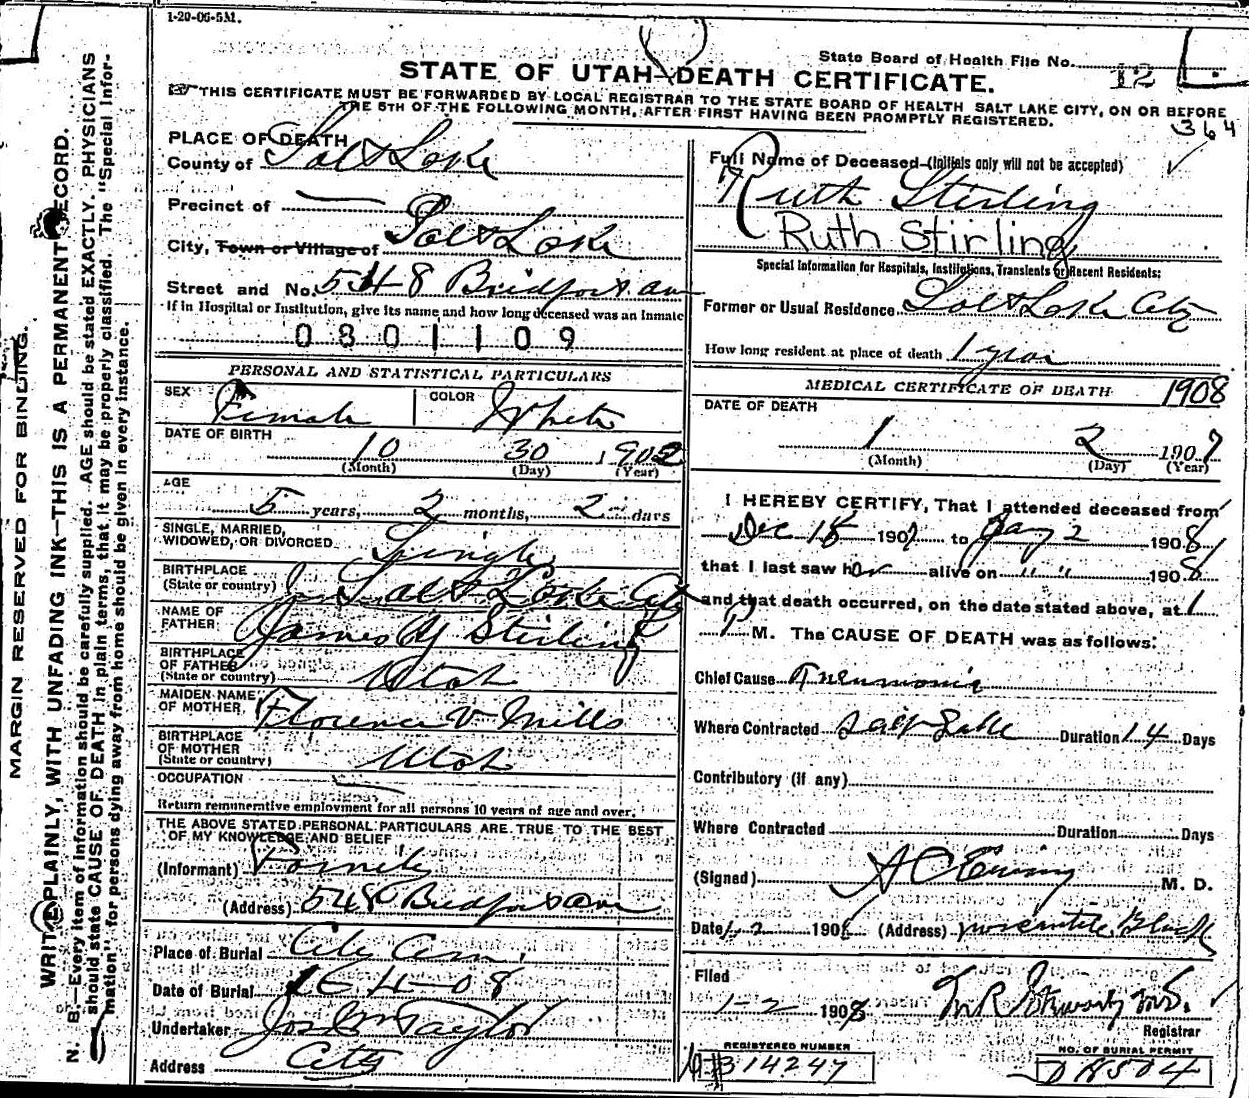 1-20-06-5M.
State Board of Health File No. 12
STATE OF UTAH—DEATH CERTIFICATE.
THIS CERTIFICATE MUST BE FORWARDED BY LOCAL REGISTRAR TO THE STATE BOARD OF HEALTH SALT LAKE CITY, ON OR BEFORE
THE 5TH OF THE FOLLOWING MONTH, AFTER FIRST HAVING BEEN PROMPTLY REGISTERED.
364
PLACE OF DEATH
County of Salt Lake
Precinct of
City, Town or Village of Salt Lake
Street and No. 548 Bridfort av
If in Hospital or Institution, give its name and how long deceased was an Inmate
0801109
PERSONAL AND STATISTICAL PARTICULARS
SEX Female COLOR White
DATE OF BIRTH 10 30 1902
(Month) (Day) (Year)
AGE
5 years, 2 months, 2 days
SINGLE, MARRIED,
WIDOWED, OR DIVORCED Single
BIRTHPLACE
(State or country) Salt Lake City
NAME OF
FATHER James Y Stirling
BIRTHPLACE
OF FATHER
(State or country) Utah
MAIDEN NAME
OF MOTHER Florence V Mills
BIRTHPLACE
OF MOTHER
(State or country) Utah
OCCUPATION
Return remunerative employment for all persons 10 years of age and over.
THE ABOVE STATED PERSONAL PARTICULARS ARE TRUE TO THE BEST
OF MY KNOWLEDGE AND BELIEF
(Informant) Family
(Address) 548 Bridfort av
Place of Burial City Cem.
Date of Burial 4-08
Undertaker Jos Wm Taylor
Address City
Full Name of Deceased—(Initials only will not be accepted)
Ruth Stirling
Ruth Stirling
Special Information for Hospitals, Institutions, Transients or Recent Residents:
Former or Usual Residence Salt Lake City
How long resident at place of death 1 year
MEDICAL CERTIFICATE OF DEATH 1908
DATE OF DEATH
1 2 1907
(Month) (Day) (Year)
I HEREBY CERTIFY, That I attended deceased from
Dec 18 1907 to Jany 2 1908
that I last saw her alive on " " 1908
and that death occurred, on the date stated above, at 1
P M. The CAUSE OF DEATH was as follows:
Chief Cause Pneumonia
Where Contracted Salt Lake Duration 14 Days
Contributory (if any)
Where Contracted Duration Days
(Signed) A C Ewing M. D.
Date 1-2 1908 (Address) Mercantile Block
Filed
1-2 1908 M.R. Stewart M.D.
Registrar
REGISTERED NUMBER
314247
NO. OF BURIAL PERMIT
D H504
MARGIN RESERVED FOR BINDING.
WRITE PLAINLY, WITH UNFADING INK—THIS IS A PERMANENT RECORD.
N. B.—Every item of information should be carefully supplied. AGE should be stated EXACTLY. PHYSICIANS
should state CAUSE OF DEATH in plain terms, that it may be properly classified. The "Special Infor-
mation" for persons dying away from home should be given in every instance.